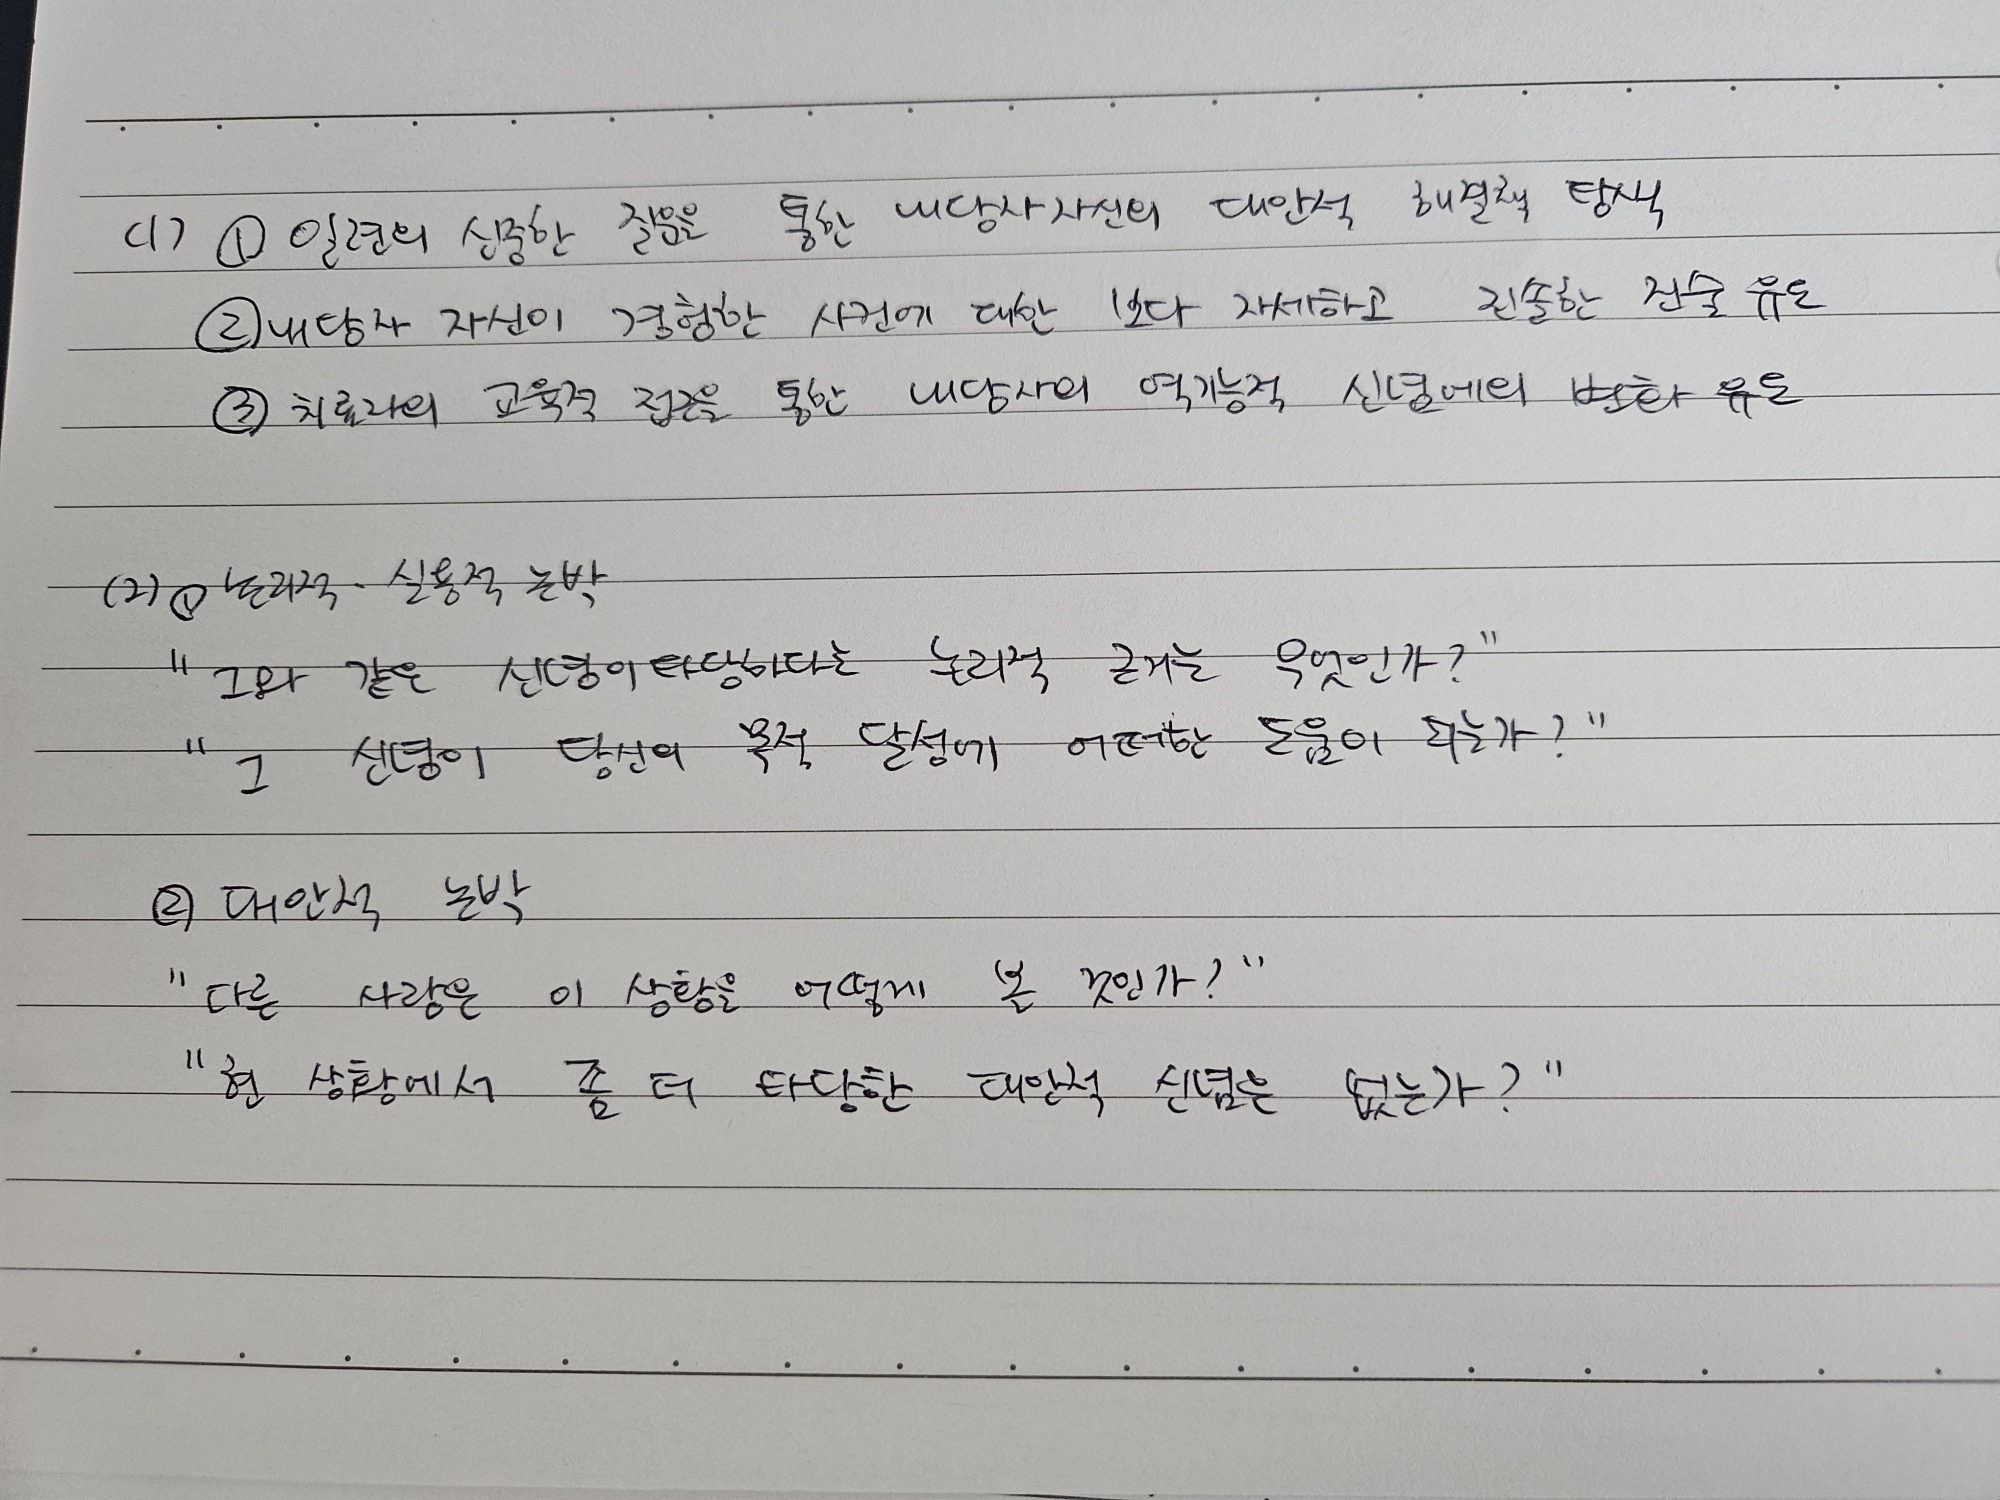 (1) ① 일련의 신중한 질문을 통한 내담자 자신의 대안적 해결책 탐색
② 내담자 자신이 경험한 사건에 대한 보다 자세하고 진솔한 진술 유도
③ 치료자의 교육적 접근을 통한 내담자의 역기능적 신념에의 변화 유도
(2) ① 논리적·실용적 논박
"그와 같은 신념이 타당하다는 논리적 근거는 무엇인가?"
"그 신념이 당신의 목적 달성에 어떠한 도움이 되는가?"
② 대안적 논박
"다른 사람은 이 상황을 어떻게 볼 것인가?"
"현 상황에서 좀 더 타당한 대안적 신념은 없는가?"